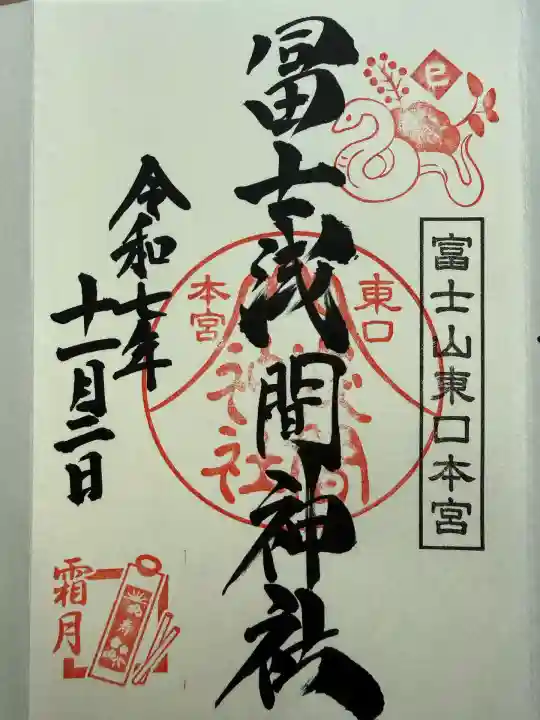 巳
富士山東口本宮
冨士浅間神社
東口
本宮
浅間
神社
令和七年
十一月二日
霜月
寿